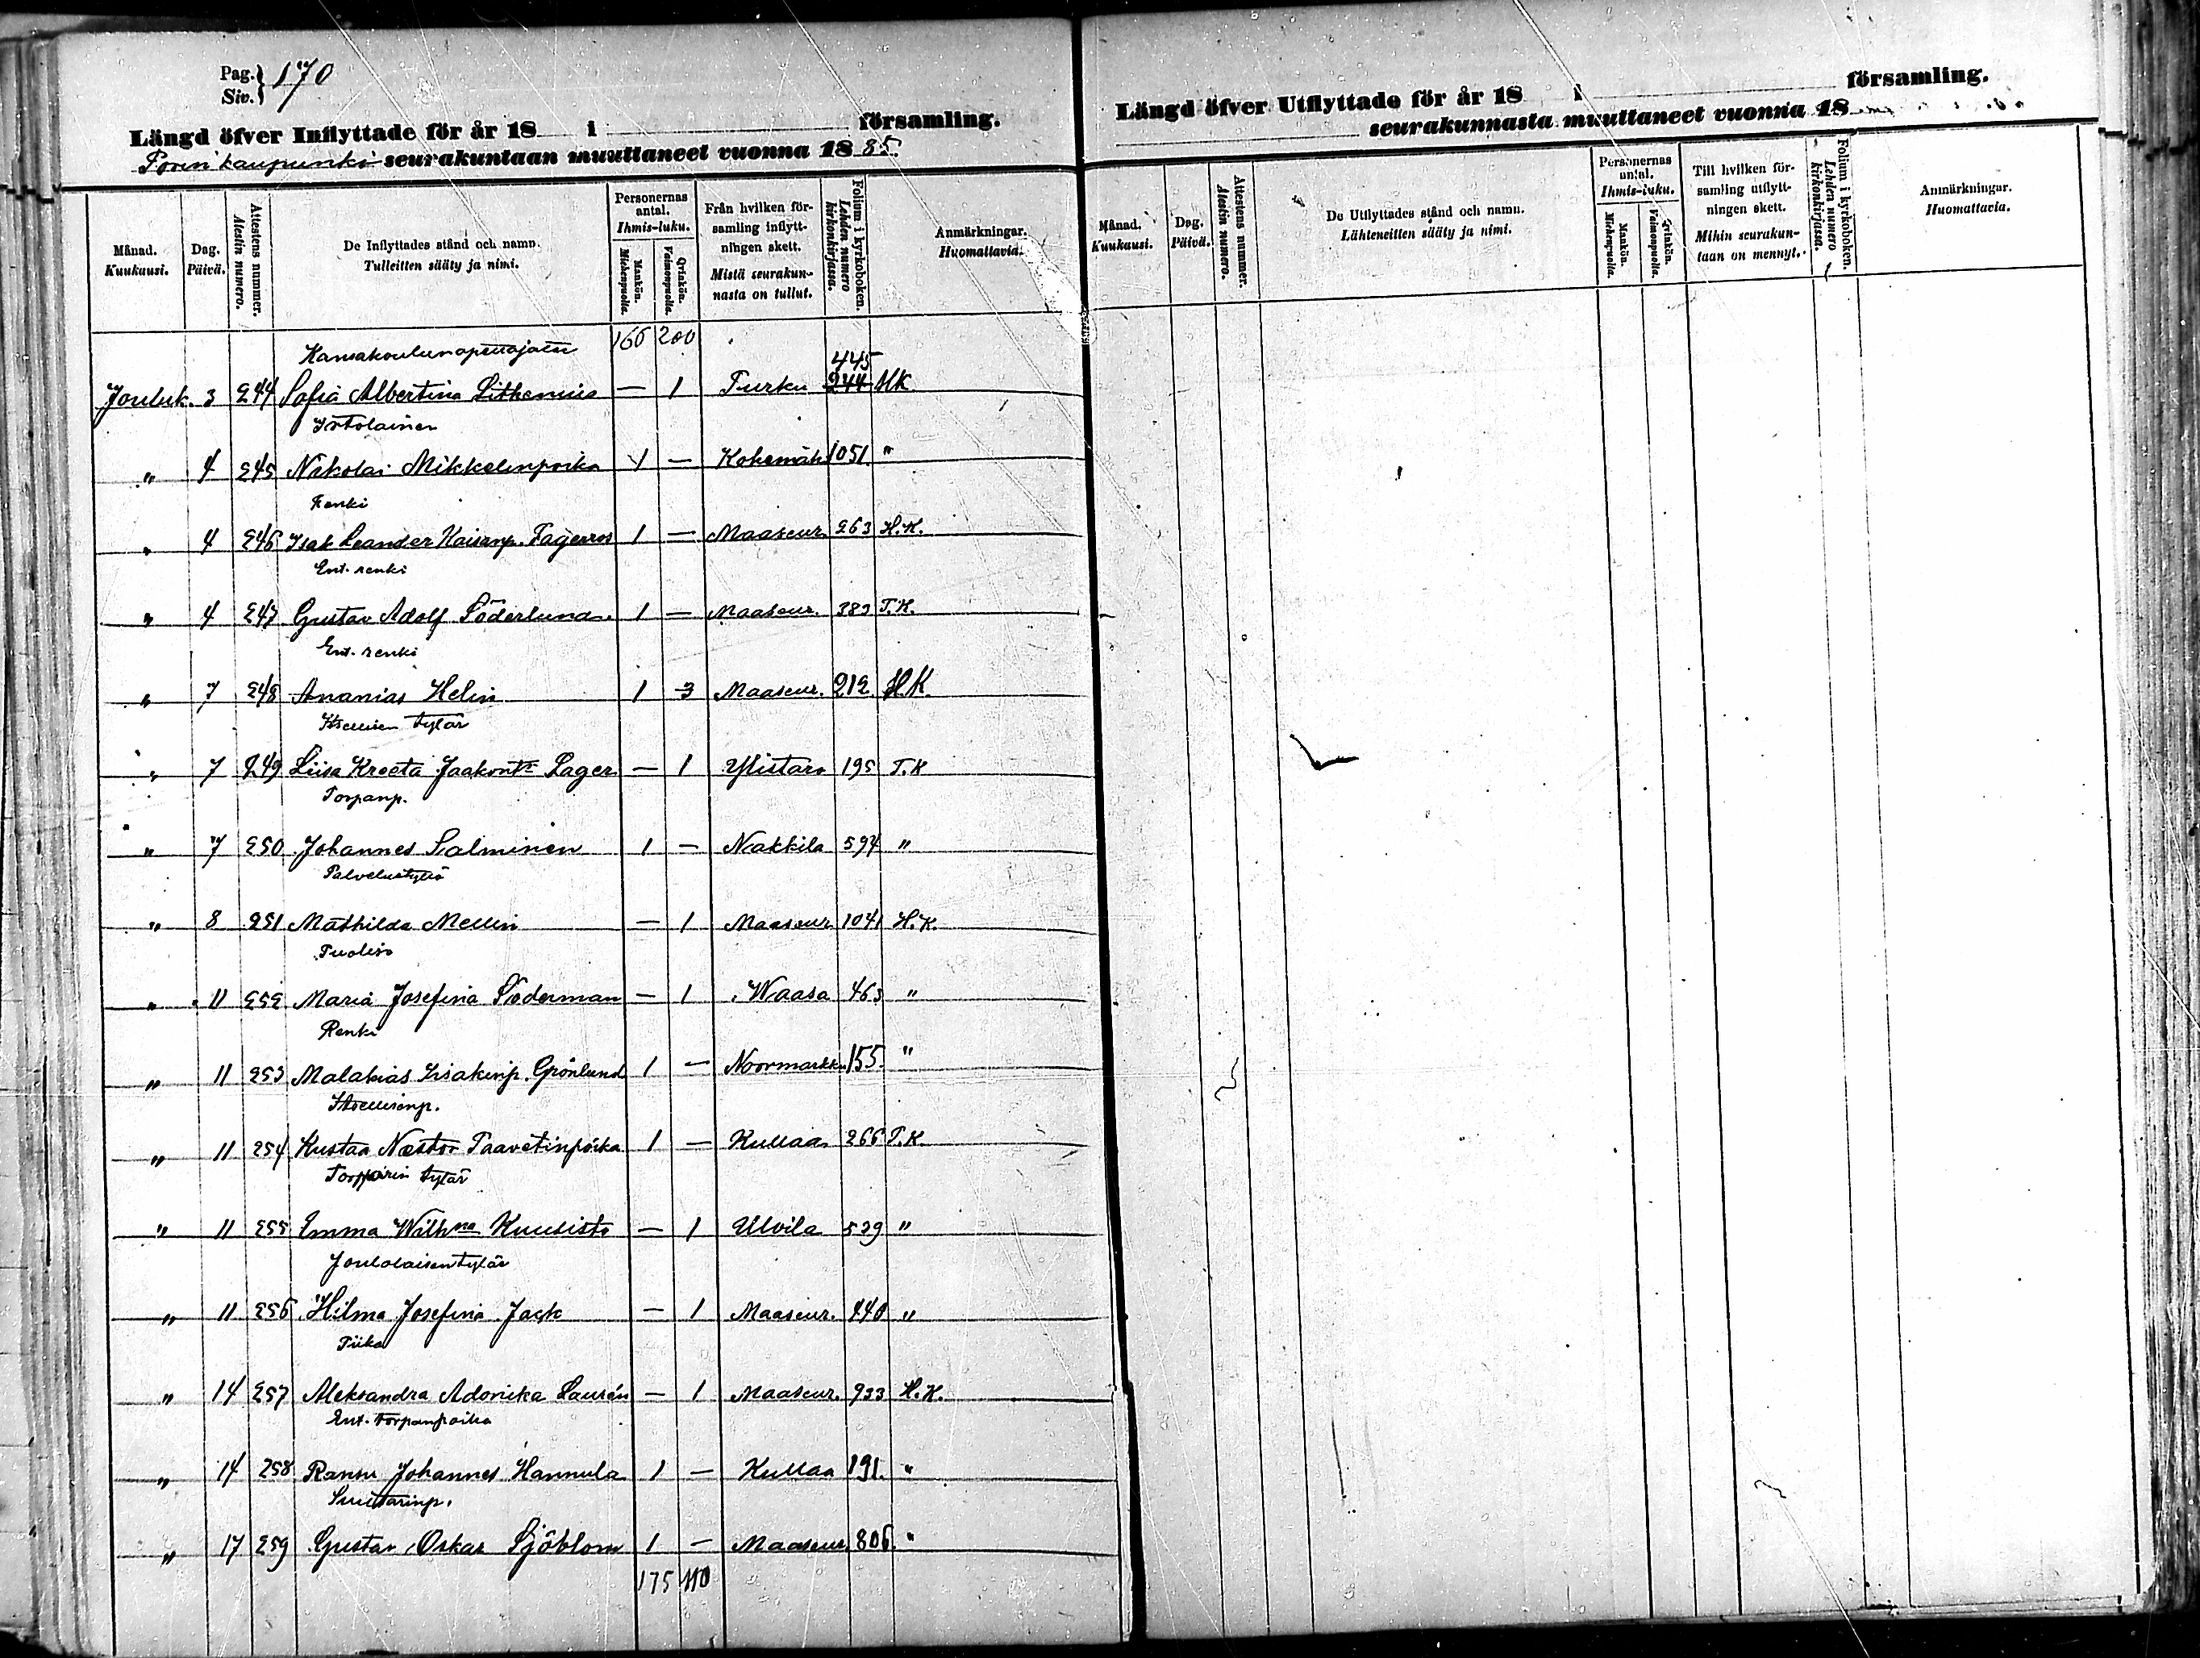 Pag. Siv. } 170
Längd öfver Inflyttade för år 18 i församling.
Porin kaupunki seurakuntaan muuttaneet vuonna 1885.
Månad. Kuukausi. Dag. Päivä. Attestens nummer. Atestin numero. De Inflyttades stånd och namn. Tulleitten sääty ja nimi. Personernas antal. Ihmis-luku. Mankön. Miehenpuolta. Qvinkön. Vaimonpuolta. Från hvilken församling inflyttningen skett. Mistä seurakunnasta on tullut. Folium i kyrkoboken. Lehden numero kirkonkirjassa. Anmärkningar. Huomattavia.
166 200
Kansakoulunopettajatar 445
Jouluk. 3 244 Sofia Albertina Lithenius — 1 Turku 244 HK
Itsolainen
" 4 245 Nikolai Mikkelinpoika 1 — Kokemäk. 1051 "
Renki
" 4 246 Isak Leander Kaisanp. Fagerros 1 — Maaseur. 263 H.K.
Ent. renki
" 4 247 Gustav Adolf Söderlund 1 — Maaseur. 383 T.K.
Ent. renki
" 7 248 Ananias Helin 1 3 Maaseur. 212 H.K.
Itsellisen tytär
" 7 249 Liisa Kreeta Jaakont:r Lager — 1 Ylistaro 195 T.K
Torpanp.
" 7 250 Johannes Salminen 1 — Nakkila 594 "
Palvelustyttö
" 8 251 Mathilda Mellin — 1 Maaseur. 1041 H.K.
" 11 252 Maria Josefina Söderman — 1 Waasa 463 "
Renki
" 11 253 Malakias Iisakinp. Grönlund 1 — Noormarkk. 155 "
Itsellisenp.
" 11 254 Kustaa Nestor Taavetinpoika 1 — Kullaa 266 T.K.
Torpparin tytär
" 11 255 Emma Wilh:na Kuusisto — 1 Ulvila 529 "
" 11 256 Hilma Josefina Jack — 1 Maaseur. 440 "
Piika
" 14 257 Aleksandra Adorika Laurén — 1 Maaseur. 933 H.K.
Ent. torpanpoika
" 14 258 Ransu Johannes Hannula 1 — Kullaa 191 "
Suutarinp.
" 17 259 Gustav Oskar Sjöblom 1 — Maaseur. 806 "
175 110
Längd öfver Utflyttade för år 18 i församling.
seurakunnasta muuttaneet vuonna 18
Månad. Kuukausi. Dag. Päivä. Attestens nummer. Atestin numero. De Utflyttades stånd och namn. Lähteneitten sääty ja nimi. Personernas antal. Ihmis-luku. Mankön. Miehenpuolta. Qvinkön. Vaimonpuolta. Till hvilken församling utflyttningen skett. Mihin seurakuntaan on mennyt. Folium i kyrkoboken. Lehden numero kirkonkirjassa. Anmärkningar. Huomattavia.